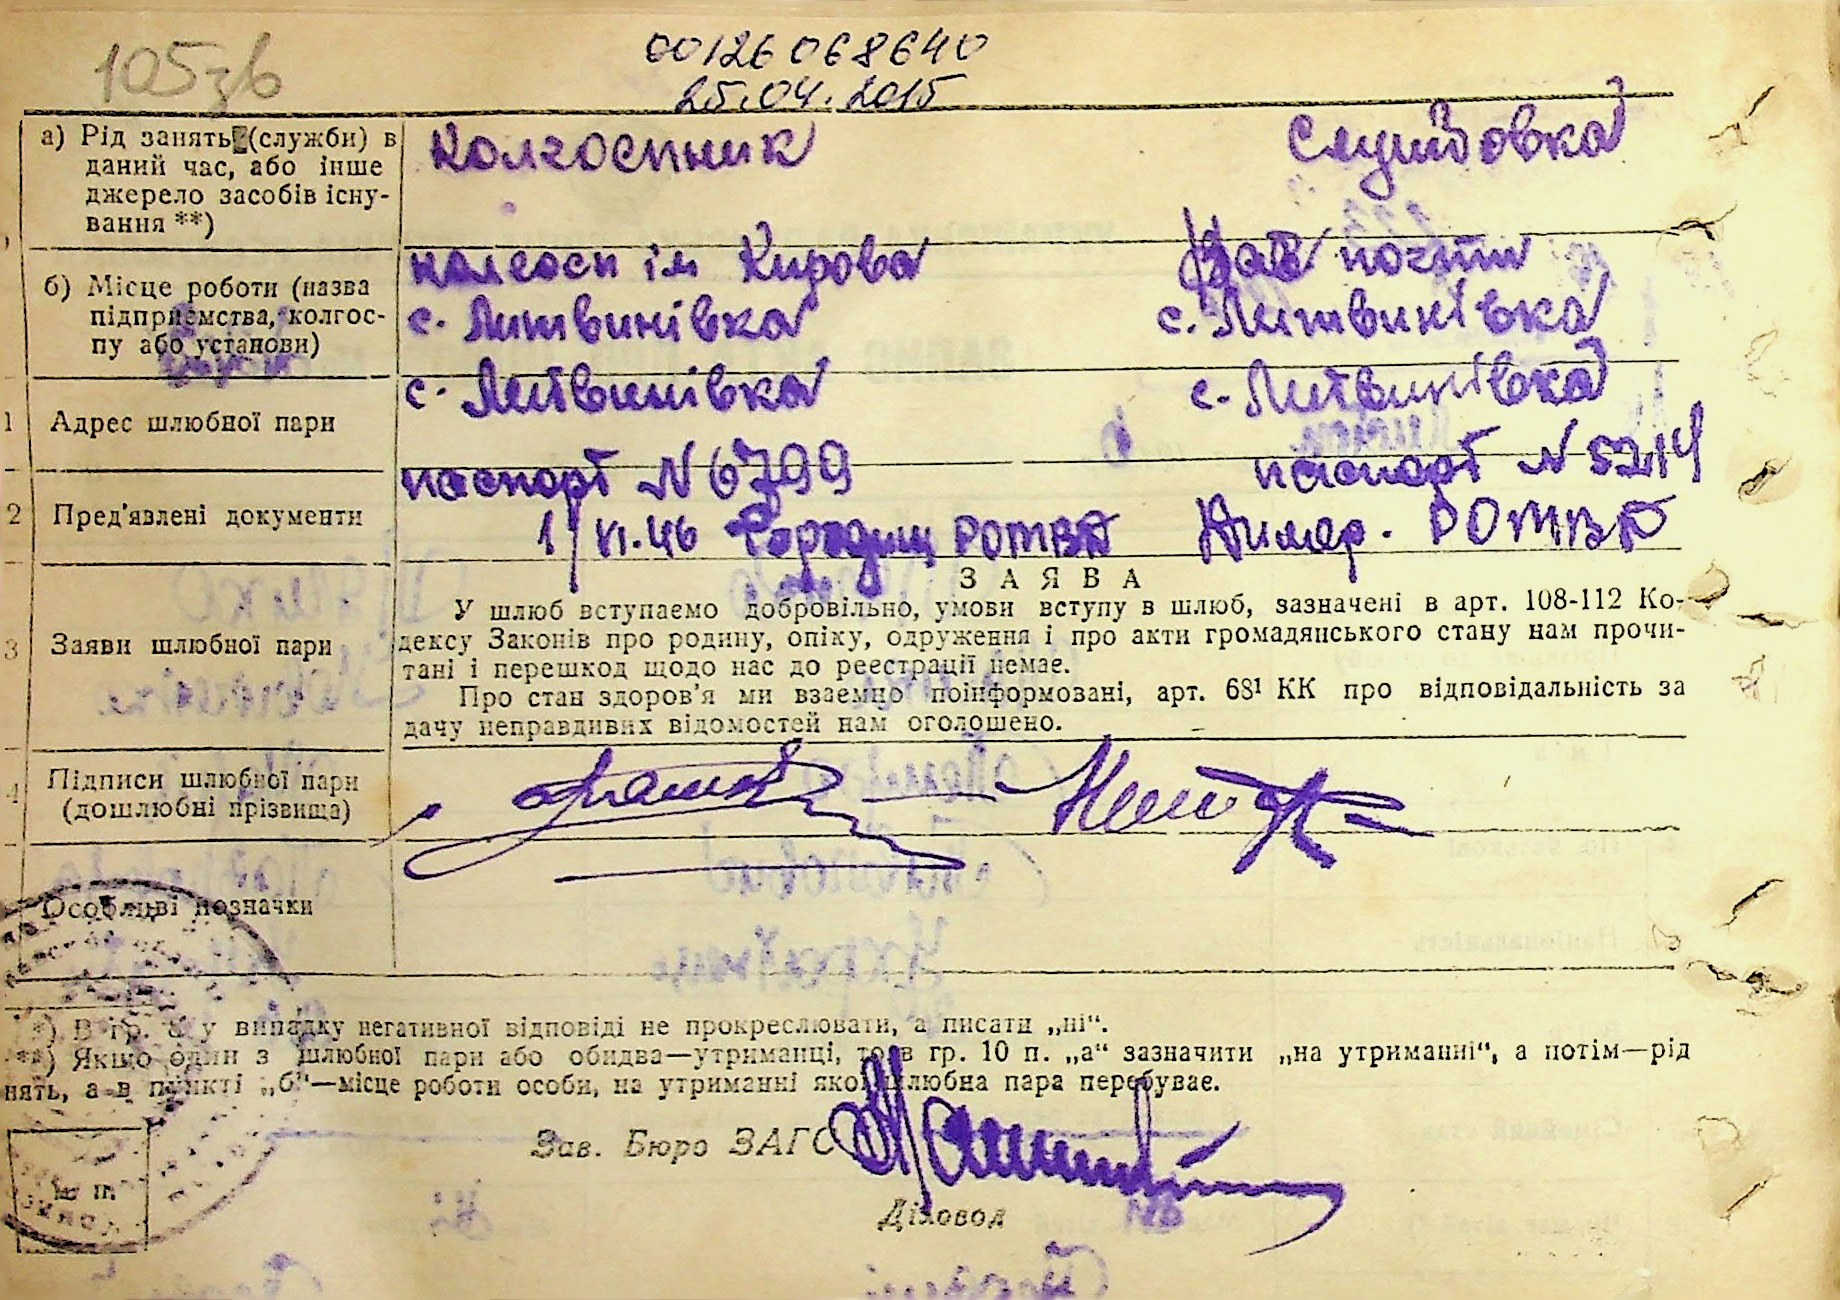 105зв
00126068640
25.04.2015
а) Рід занять (служби) в даний час, або інше джерело засобів існування **)
Колгоспник
Службовка
б) Місце роботи (назва підприємства, колгоспу або установи)
колгосп ім Кирова
с. Литвинівка
пошти
с. Литвинівка
1 Адрес шлюбної пари
с. Литвинівка
с. Литвинівка
2 Пред'явлені документи
паспорт N 6799
1/VI.46 РОМВД
паспорт N 5214
Димер. РОМВД
3 Заяви шлюбної пари
ЗАЯВА
У шлюб вступаємо добровільно, умови вступу в шлюб, зазначені в арт. 108-112 Ко-
дексу Законів про родину, опіку, одруження і про акти громадянського стану нам прочи-
тані і перешкод щодо нас до реєстрації немає.
Про стан здоров'я ми взаємно поінформовані, арт. 68¹ КК про відповідальність за
дачу неправдивих відомостей нам оголошено.
4 Підписи шлюбної пари
(дошлюбні прізвища)
Особливі позначки
*) В гр. 8 у випадку негативної відповіді не прокреслювати, а писати „ні“.
**) Якщо один з шлюбної пари або обидва—утриманці, то в гр. 10 п. „а“ зазначити „на утриманні“, а потім—рід
нять, а в пункті „б“—місце роботи особи, на утриманні якої шлюбна пара перебуває.
Зав. Бюро ЗАГС
Діловод
М. П.